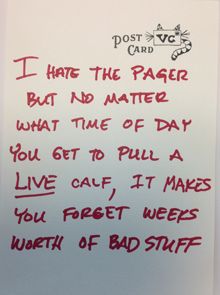 POST CARD
VC
I HATE THE PAGER
BUT NO MATTER
WHAT TIME OF DAY
YOU GET TO PULL A
LIVE CALF, IT MAKES
YOU FORGET WEEKS
WORTH OF BAD STUFF